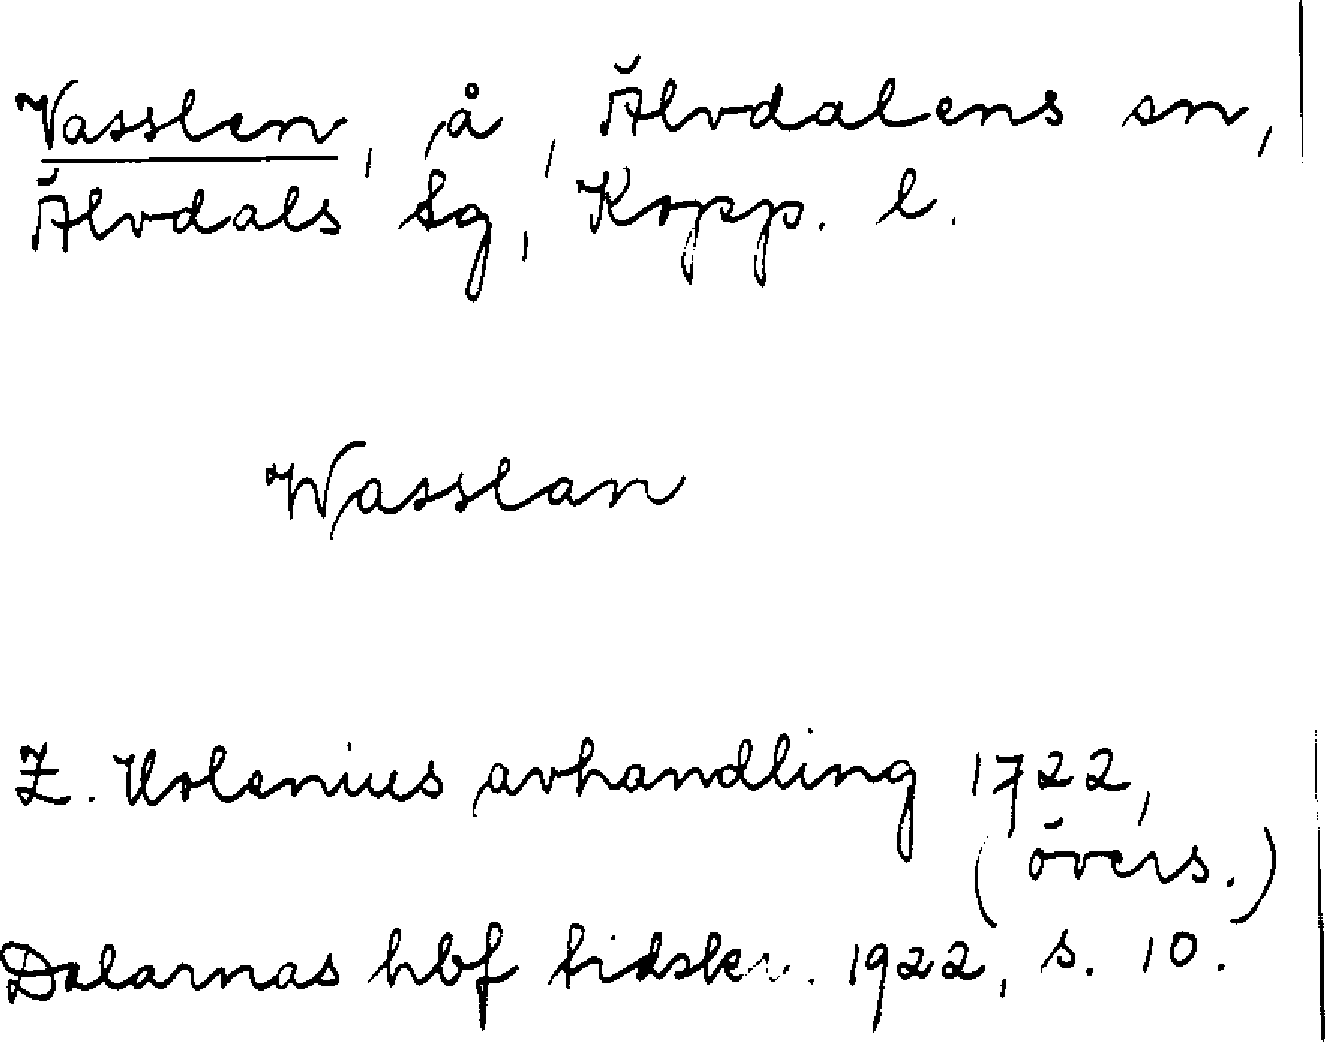 Vasslen, å, Älvdalens sn,
Älvdals tg, Kopp. l.
Wasslan
Z. Holenius avhandling 1722,
(övers.)
Dalarnas hbf tidskr. 1922, s. 10.